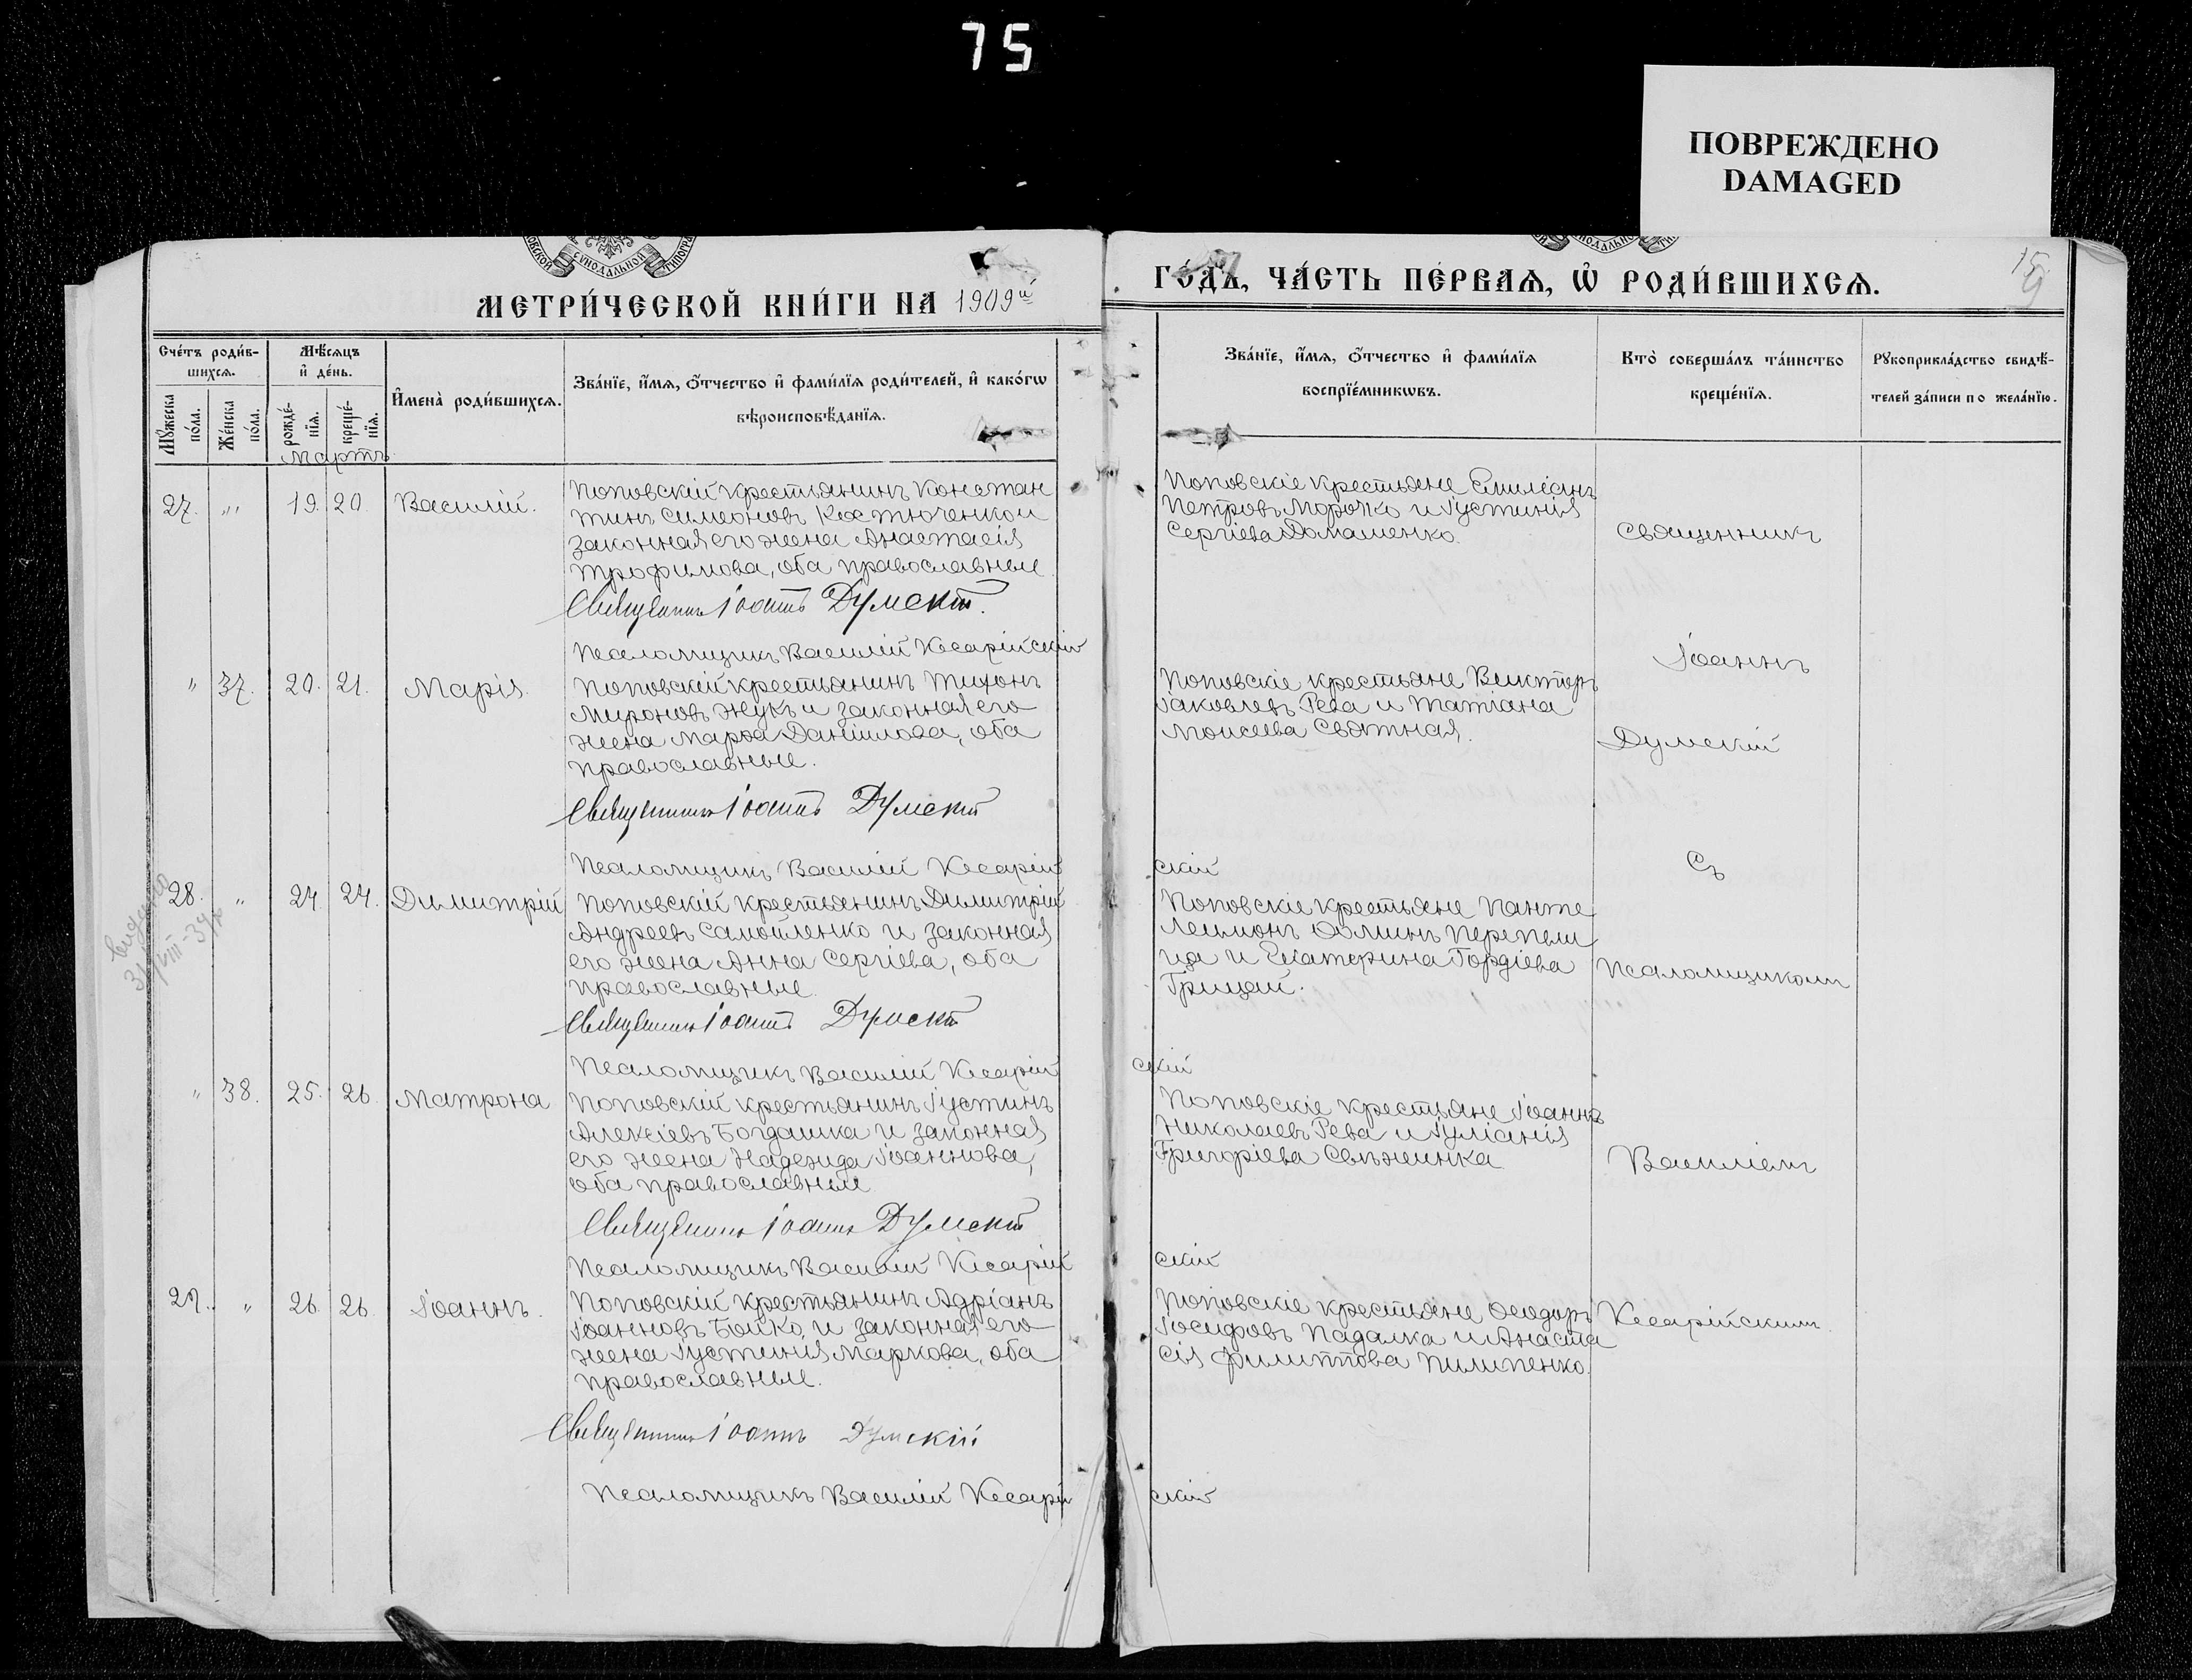 75
ПОВРЕЖДЕНО
DAMAGED
СѴНОДАЛЬНОЙ
МЕТРИ́ЧЕСКОЙ КНИ́ГИ НА 1909й
ГО́ДЪ, ЧА́СТЬ ПЕ́РВАѦ, Ѽ РОДИ́ВШИХСѦ.
15
Сче́тъ роди́в-
шихсѧ.
Мꙋ́жеска
по́ла.
Же́нска
по́ла.
Мѣ́сѧцъ
и҆ де́нь.
рожде́-
нїѧ.
креще́-
нїѧ.
И҆мена̀ роди́вшихсѧ.
Зва́нїе, и҆́мѧ, ѻ҆́тчество и҆ фами́лїѧ роди́телей, и҆ како́гѡ
вѣроисповѣ́данїѧ.
Зва́нїе, и҆́мѧ, ѻ҆́тчество и҆ фами́лїѧ
воспрїе́мникѡвъ.
Кто̀ соверша́лъ та́инство
креще́нїѧ.
Рꙋкоприкла́дство свидѣ́-
телей за́писи по жела́нїю.
Мартъ
27. " 19. 20. Василій.
Поповскій крестьянинъ Констан
тинъ Симеоновъ Костюченко и
законная его жена Анастасія
Трофимова, оба православные
Священникъ Іоаннъ Думскій.
Псаломщикъ Василій Кесарійскій
Поповскіе крестьяне Емиліанъ
Петровъ Морочко и Іустинія
Сергіева Домашенко.
Священникъ
Іоаннъ
Думскій
Съ
Псаломщикомъ
Василіемъ
Кесарійскимъ.
" 37. 20. 21. Марія.
Поповскій крестьянинъ Тихонъ
Мироновъ Жукъ и законная его
жена Марѳа Даніилова, оба
православные.
Священникъ Іоаннъ Думскій
Псаломщикъ Василій Кесарій
скій
Поповскіе крестьяне Викторъ
Іаковлевъ Рева и Татіана
Моисеева Святная.
28. " 24 24. Димитрій
Поповскій крестьянинъ Димитрій
Андреевъ Самойленко и законная
его жена Анна Сергіева, оба
православные.
Священникъ Іоаннъ Думскій
Псаломщикъ Василій Кесарій
скій
Поповскіе крестьяне Панте
леимонъ Ѳоминъ Перепели
ца и Екатерина Гордіева
Грицай.
видано
" 38. 25. 26. Матрона
Поповскій крестьянинъ Іустинъ
Алексіевъ Богдашка и законная
его жена Надежда Іоаннова,
оба православные
Священникъ Іоаннъ Думскій
Псаломщикъ Василій Кесарій
скій
Поповскіе крестьяне Іоаннъ
Николаевъ Рева и Іуліанія
Григоріева
29. " 26. 26. Іоаннъ.
Поповскій крестьянинъ Адріанъ
Іоанновъ Бойко, и законная его
жена Іустинія Маркова, оба
православные.
Священникъ Іоаннъ Думскій
Псаломщикъ Василій Кесарій
скій
Поповскіе крестьяне Ѳеодоръ
Іосифовъ Падалка и Анаста
сія Филиппова Пилипенко.